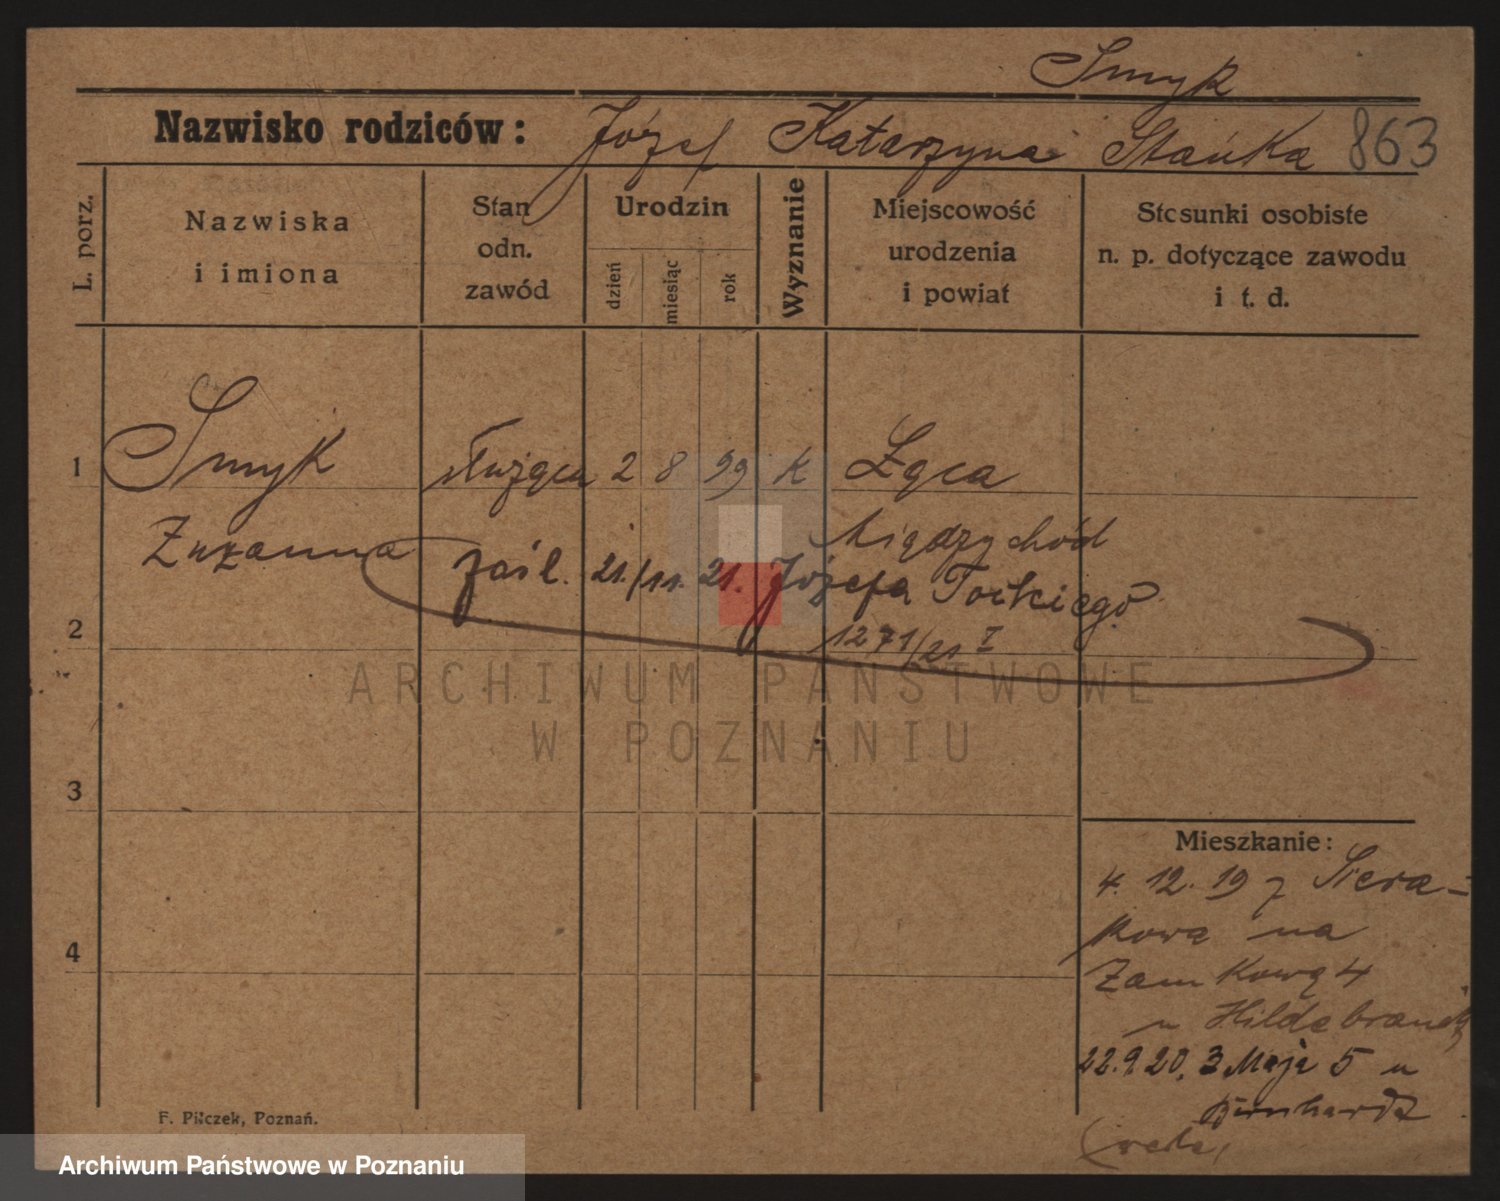 Smyk
Nazwisko rodziców: Józef Katarzyna Stańka 863
L. porz.
Nazwiska i imiona
Stan odn. zawód
Urodzin
dzień
miesiąc
rok
Wyznanie
Miejscowość urodzenia i powiat
Stosunki osobiste n. p. dotyczące zawodu i t. d.
1 Smyk służąca 2 8 99 K Łąca
Zuzanna Międzychód
zaśl. 21./11. 21. Józefa Torkiego
2
1271/21 I
ARCHIWUM PAŃSTWOWE
W POZNANIU
3
Mieszkanie:
4. 12. 19 z Siera-
kowa na
4
Zamkową 4
u Hildebrandt
22.9.20. 3 Maja 5 u
Bernhardt
F. Pilczek, Poznań.
Archiwum Państwowe w Poznaniu